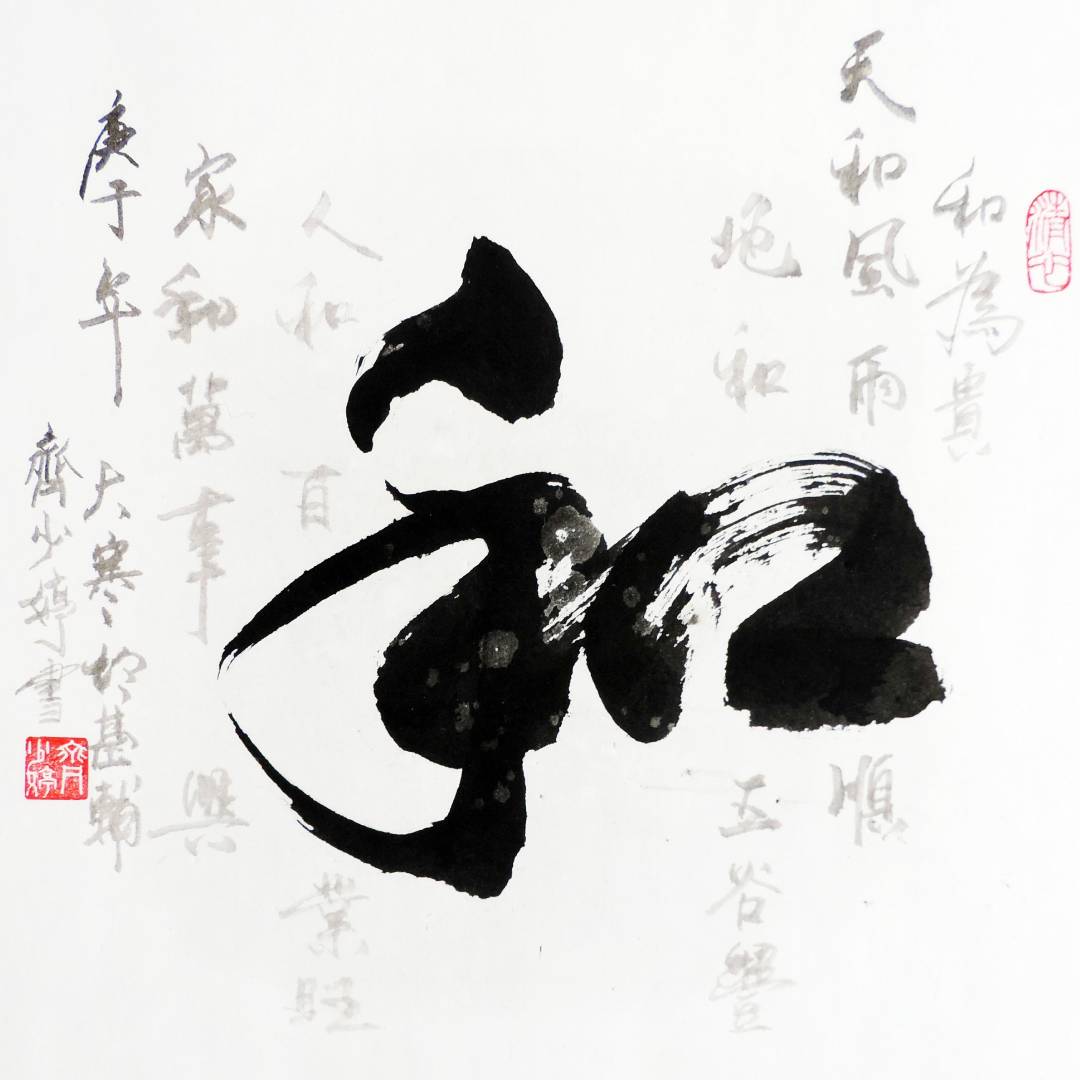 和為貴
天和風雨順
地和五谷豐
和
人和百業旺
家和萬事興
庚子年
大寒
齊少婷書
齊少婷